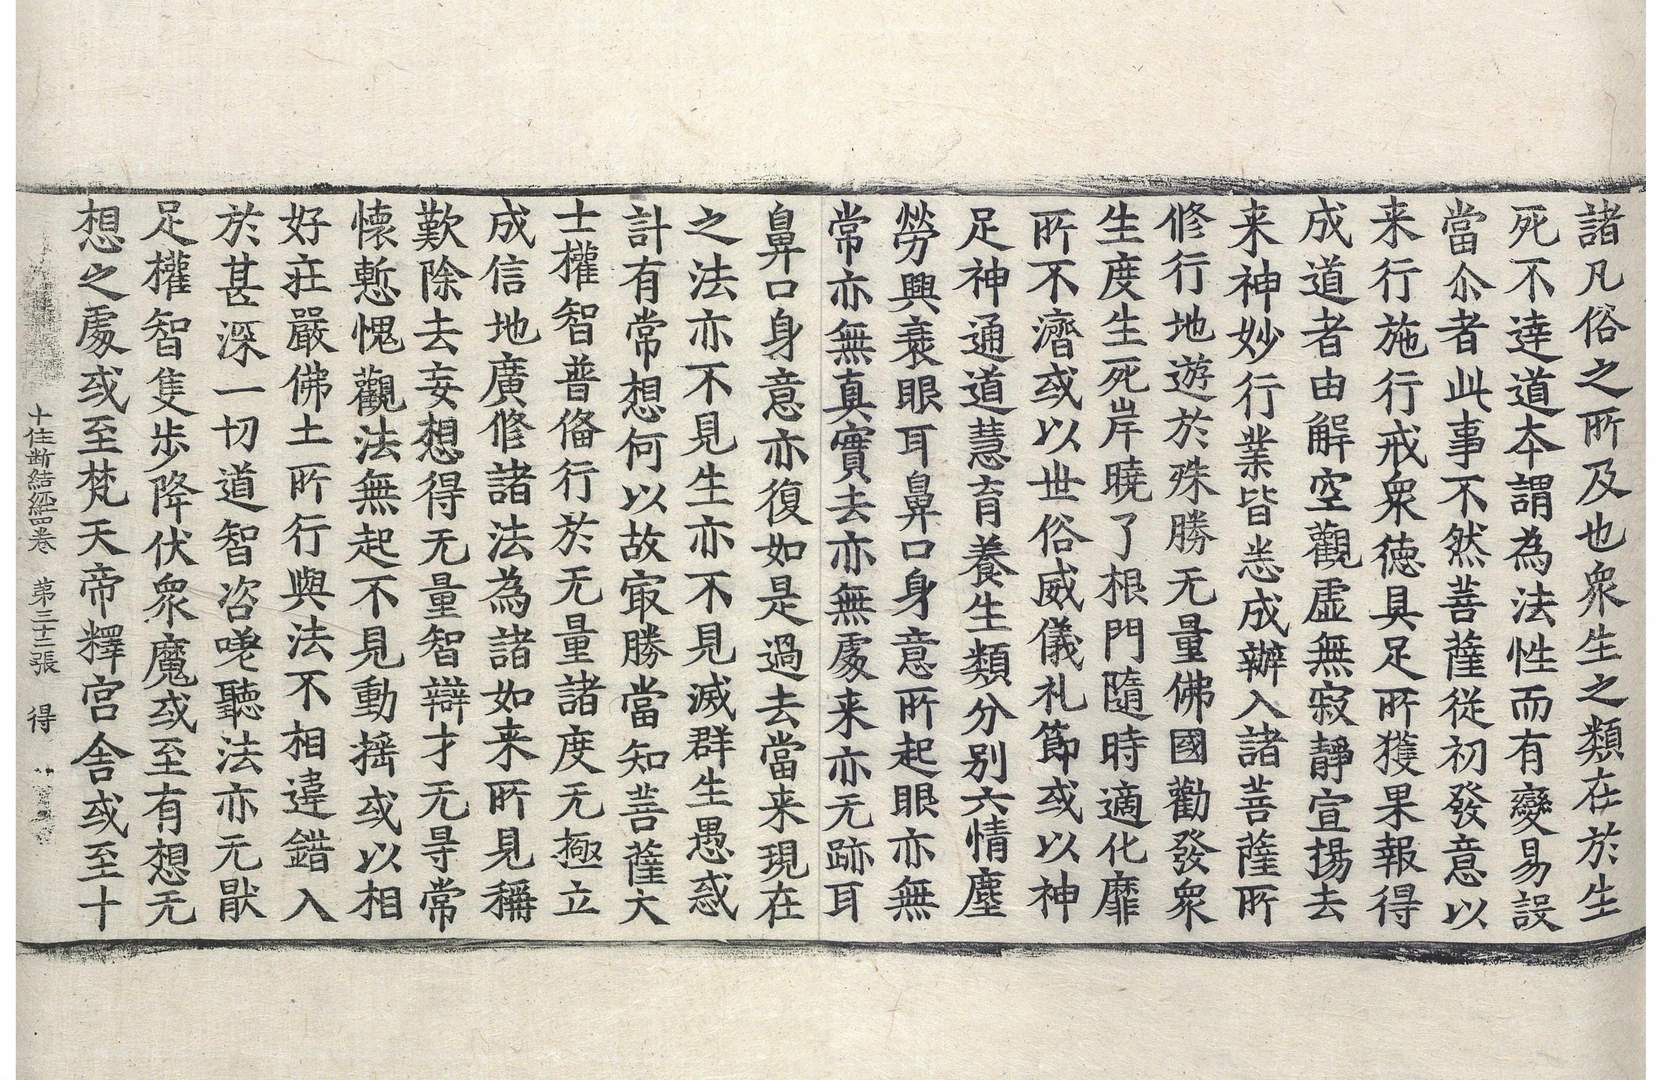 諸凡俗之所及也衆生之類在於生
死不達道本謂為法性而有變易設
當尒者此事不然菩薩從初發意以
来行施行戒衆德具足所獲果報得
成道者由解空觀虛無寂靜宣揚去
来神妙行業皆悉成辦入諸菩薩所
修行地遊於殊勝无量佛國勸發衆
生度生死岸曉了根門隨時適化靡
所不濟或以世俗威儀礼節或以神
足神通道慧育養生類分別六情塵
勞興衰眼耳鼻口身意所起眼亦無
常亦無真實去亦無處来亦无跡耳
鼻口身意亦復如是過去當来現在
之法亦不見生亦不見滅群生愚惑
計有常想何以故㝡勝當知菩薩大
士權智普俻行於无量諸度无極立
成信地廣修諸法為諸如来所見稱
歎除去妄想得无量智辯才无㝵常
懷慙愧觀法無起不見動揺或以相
好莊嚴佛土所行與法不相違錯入
於甚深一切道智咨嗟聽法亦无猒
足權智隻步降伏衆魔或至有想无
想之處或至梵天帝釋宮舍或至十
十住断結經四卷 第三十二張 得